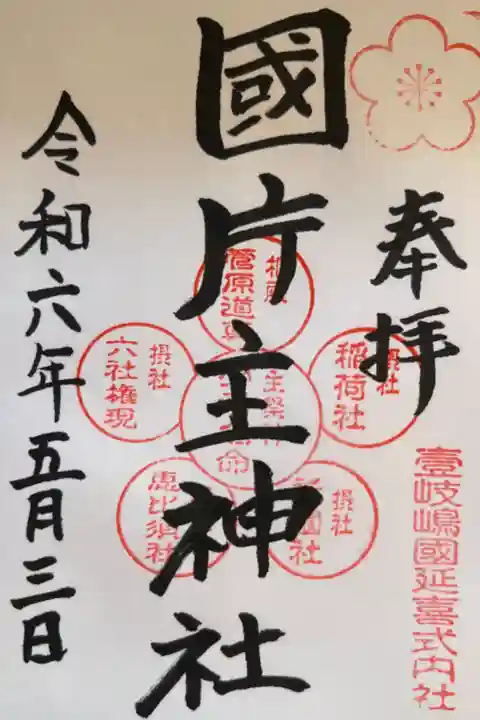 奉拝
壹岐嶋國延喜式内社
國片主神社
令和六年五月三日
摂社
稲荷社
相殿
菅原道真
主祭神
命
摂社
六社権現
摂社
国社
恵比須社